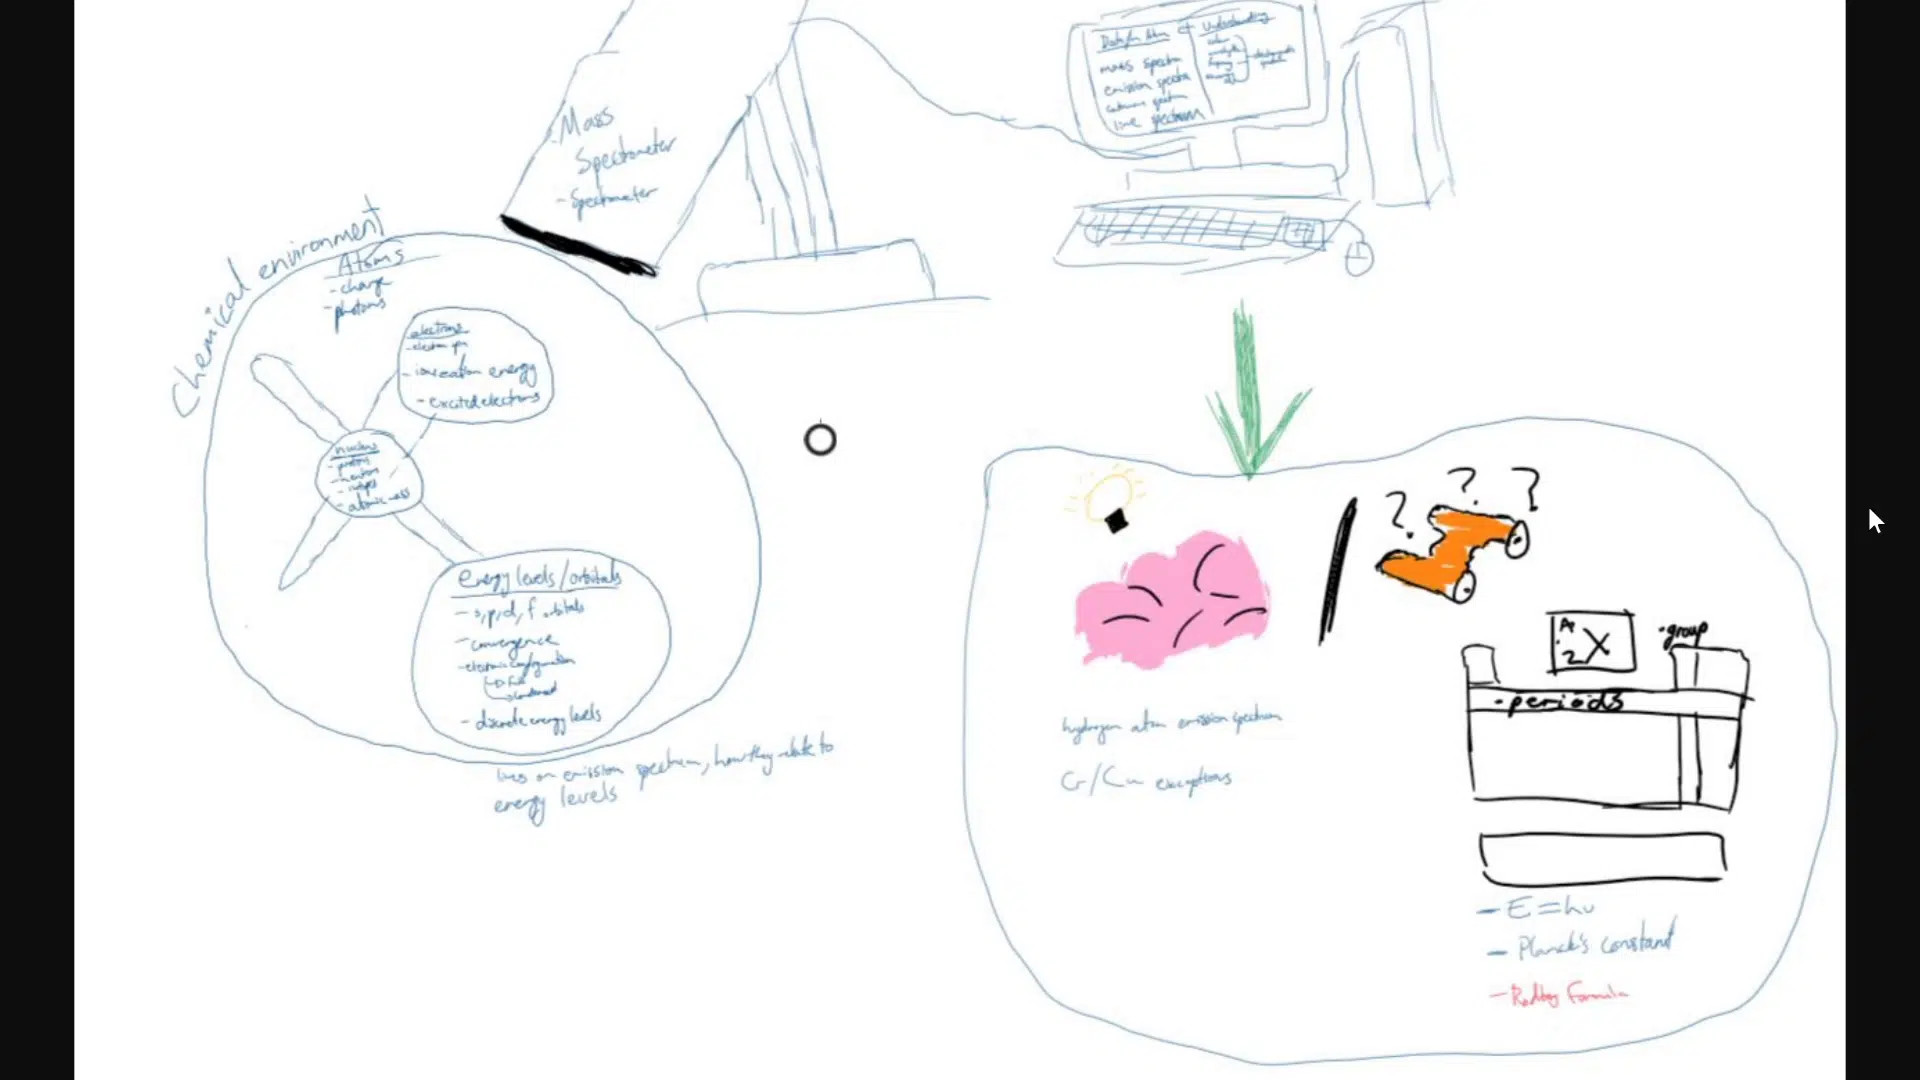 Mass
Spectrometer
- Spectrometer
Data from Atom
mass spectra
emission spectra
continuous spectrum
line spectrum
Understanding
Chemical environment
Atoms
- charge
- photons
electrons
- electron spin
- ionization energy
- excited electrons
nucleus
- protons
- neutrons
- isotopes
- atomic mass
energy levels/orbitals
- s, p, d, f orbitals
- convergence
- electronic configuration
full
condensed
- discrete energy levels
lines on emission spectrum, how they relate to
energy levels
? ? ?
A
Z X
• group
• periods
hydrogen atom emission spectrum
Cr/Cu exceptions
- E = hν
- Planck's constant
Formula